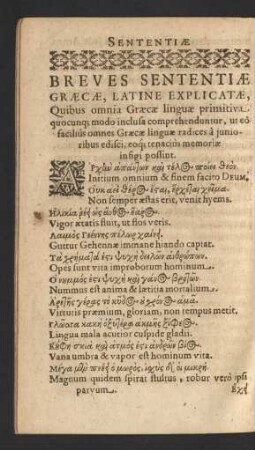 SENTENTIÆ
BREVES SENTENTIÆ
GRÆCÆ, LATINE EXPLICATÆ,
Quibus omnia Græcæ linguæ primitiva
quocunq; modo inclusa comprehenduntur, ut eò
faciliùs omnes Græcæ linguæ radices à junio-
ribus edisci, eoq; tenaciùs memoriæ
infigi possint.
Ἀρχὴν ἁπάντων καὶ τέλος ποίει θεόν.
Initium omnium & finem facito DEUM.
Οὐκ αἰεὶ θέρος ἔσεται, ἔρχεται χεῖμα.
Non semper æstas erit, venit hyems.
Ἡλικία ῥεῖ ὡς ἄνθος ἔαρος.
Vigor ætatis fluit, ut flos veris.
Λαιμὸς Γεέννης πέλωρ χαίνει.
Guttur Gehennæ immane hiando captat.
Τὰ χρήματά ἐστι ψυχὴ δειλῶν ἀνθρώπων.
Opes sunt vita improborum hominum.
Ὁ νυμμός ἐστι ψυχὴ καὶ γάνος βροτῷ.
Nummus est anima & lætitia mortalium.
Ἀρετῆς γέρας τὸ κῦδος, οὐ χρόνος ἀμᾷ.
Virtutis præmium, gloriam, non tempus metit.
Γλῶσσα κακὴ ὀξυτέρα ἀκμῆς ξίφεος.
Lingua mala acutior cuspide gladii.
Κούφη σκιὰ καὶ ἀτμός ἐστι ἀνδρῶν βίος.
Vana umbra & vapor est hominum vita.
Μέγα μὲν πνέει ὁ μωρὸς, ἰσχὺς δὲ οἱ μικρή.
Magnum quidem spirat stultus, robur verò ipsi
parvum.